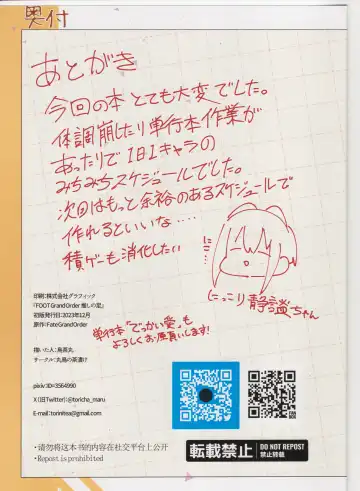 奥付
あとがき
今回の本とても大変でした。
体調崩したり単行本作業が
あったりで1日1キャラの
みちみちスケジュールでした。
次回はもっと余裕のあるスケジュールで
作れるといいな....
積ゲーも消化したい
にこ...
にっこり静謐ちゃん
印刷:株式会社グラフィック
『FOOT Grand Order 推しの足』
初版発行日:2023年12月
原作:Fate Grand Order
単行本"でっかい愛"も
よろしくお願いします!
描いた人:鳥茶丸
サークル:丸鳥の茶漬け
pixiv:ID=3564990
X(旧Twitter):@toricha_maru
E-mail:torinitea@gmail.com
・请勿将这本书的内容在社交平台上公开
・Repost is prohibited
転載禁止
DO NOT REPOST
禁止转载